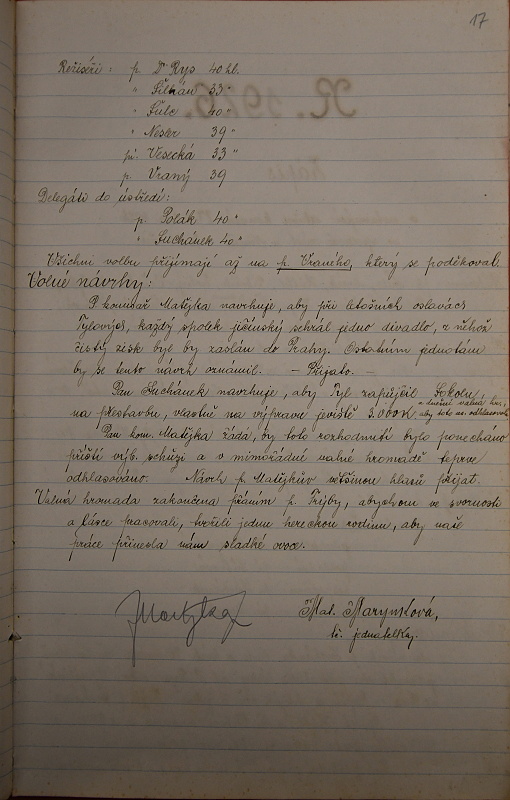 17
Režiséři: p. Dr Rys 40 hl.
" Šilhán 33 "
" Šulc 40 "
" Nesler 39 "
pí. Vesecká 33 "
p. Vraný 39
Delegáti do ústředí:
p. Polák 40 "
" Suchánek 40 "
Všichni volbu přijímají až na p. Vraného, který se poděkoval.
Volné návrhy:
P. komisař Matějka navrhuje, aby při letošních oslavách
Tylových, každý spolek jičínský sehrál jedno divadlo, z něhož
čistý zisk byl by zaslán do Prahy. Ostatním jednotám
by se tento návrh oznámil. - Přijato. -
Pan Suchánek navrhuje, aby Tyl zapůjčil Sokolu,
na přestavbu, vlastně na výpravu jeviště 3.000 K aby toto
Pan kom. Matějka žádá, by toto rozhodnutí bylo ponecháno
příští výb. schůzi a v mimořádné valné hromadě teprve
odhlasováno. Návrh p. Matějkův většinou hlasů přijat.
Valná hromada zakončena přáním p. Frýby, abychom ve svornosti
a lásce pracovali, tvořili jednu hereckou rodinu, aby naše
práce přinesla nám sladké ovoce.
Matějka
Mal. Marynková,
tč. jednatelka.